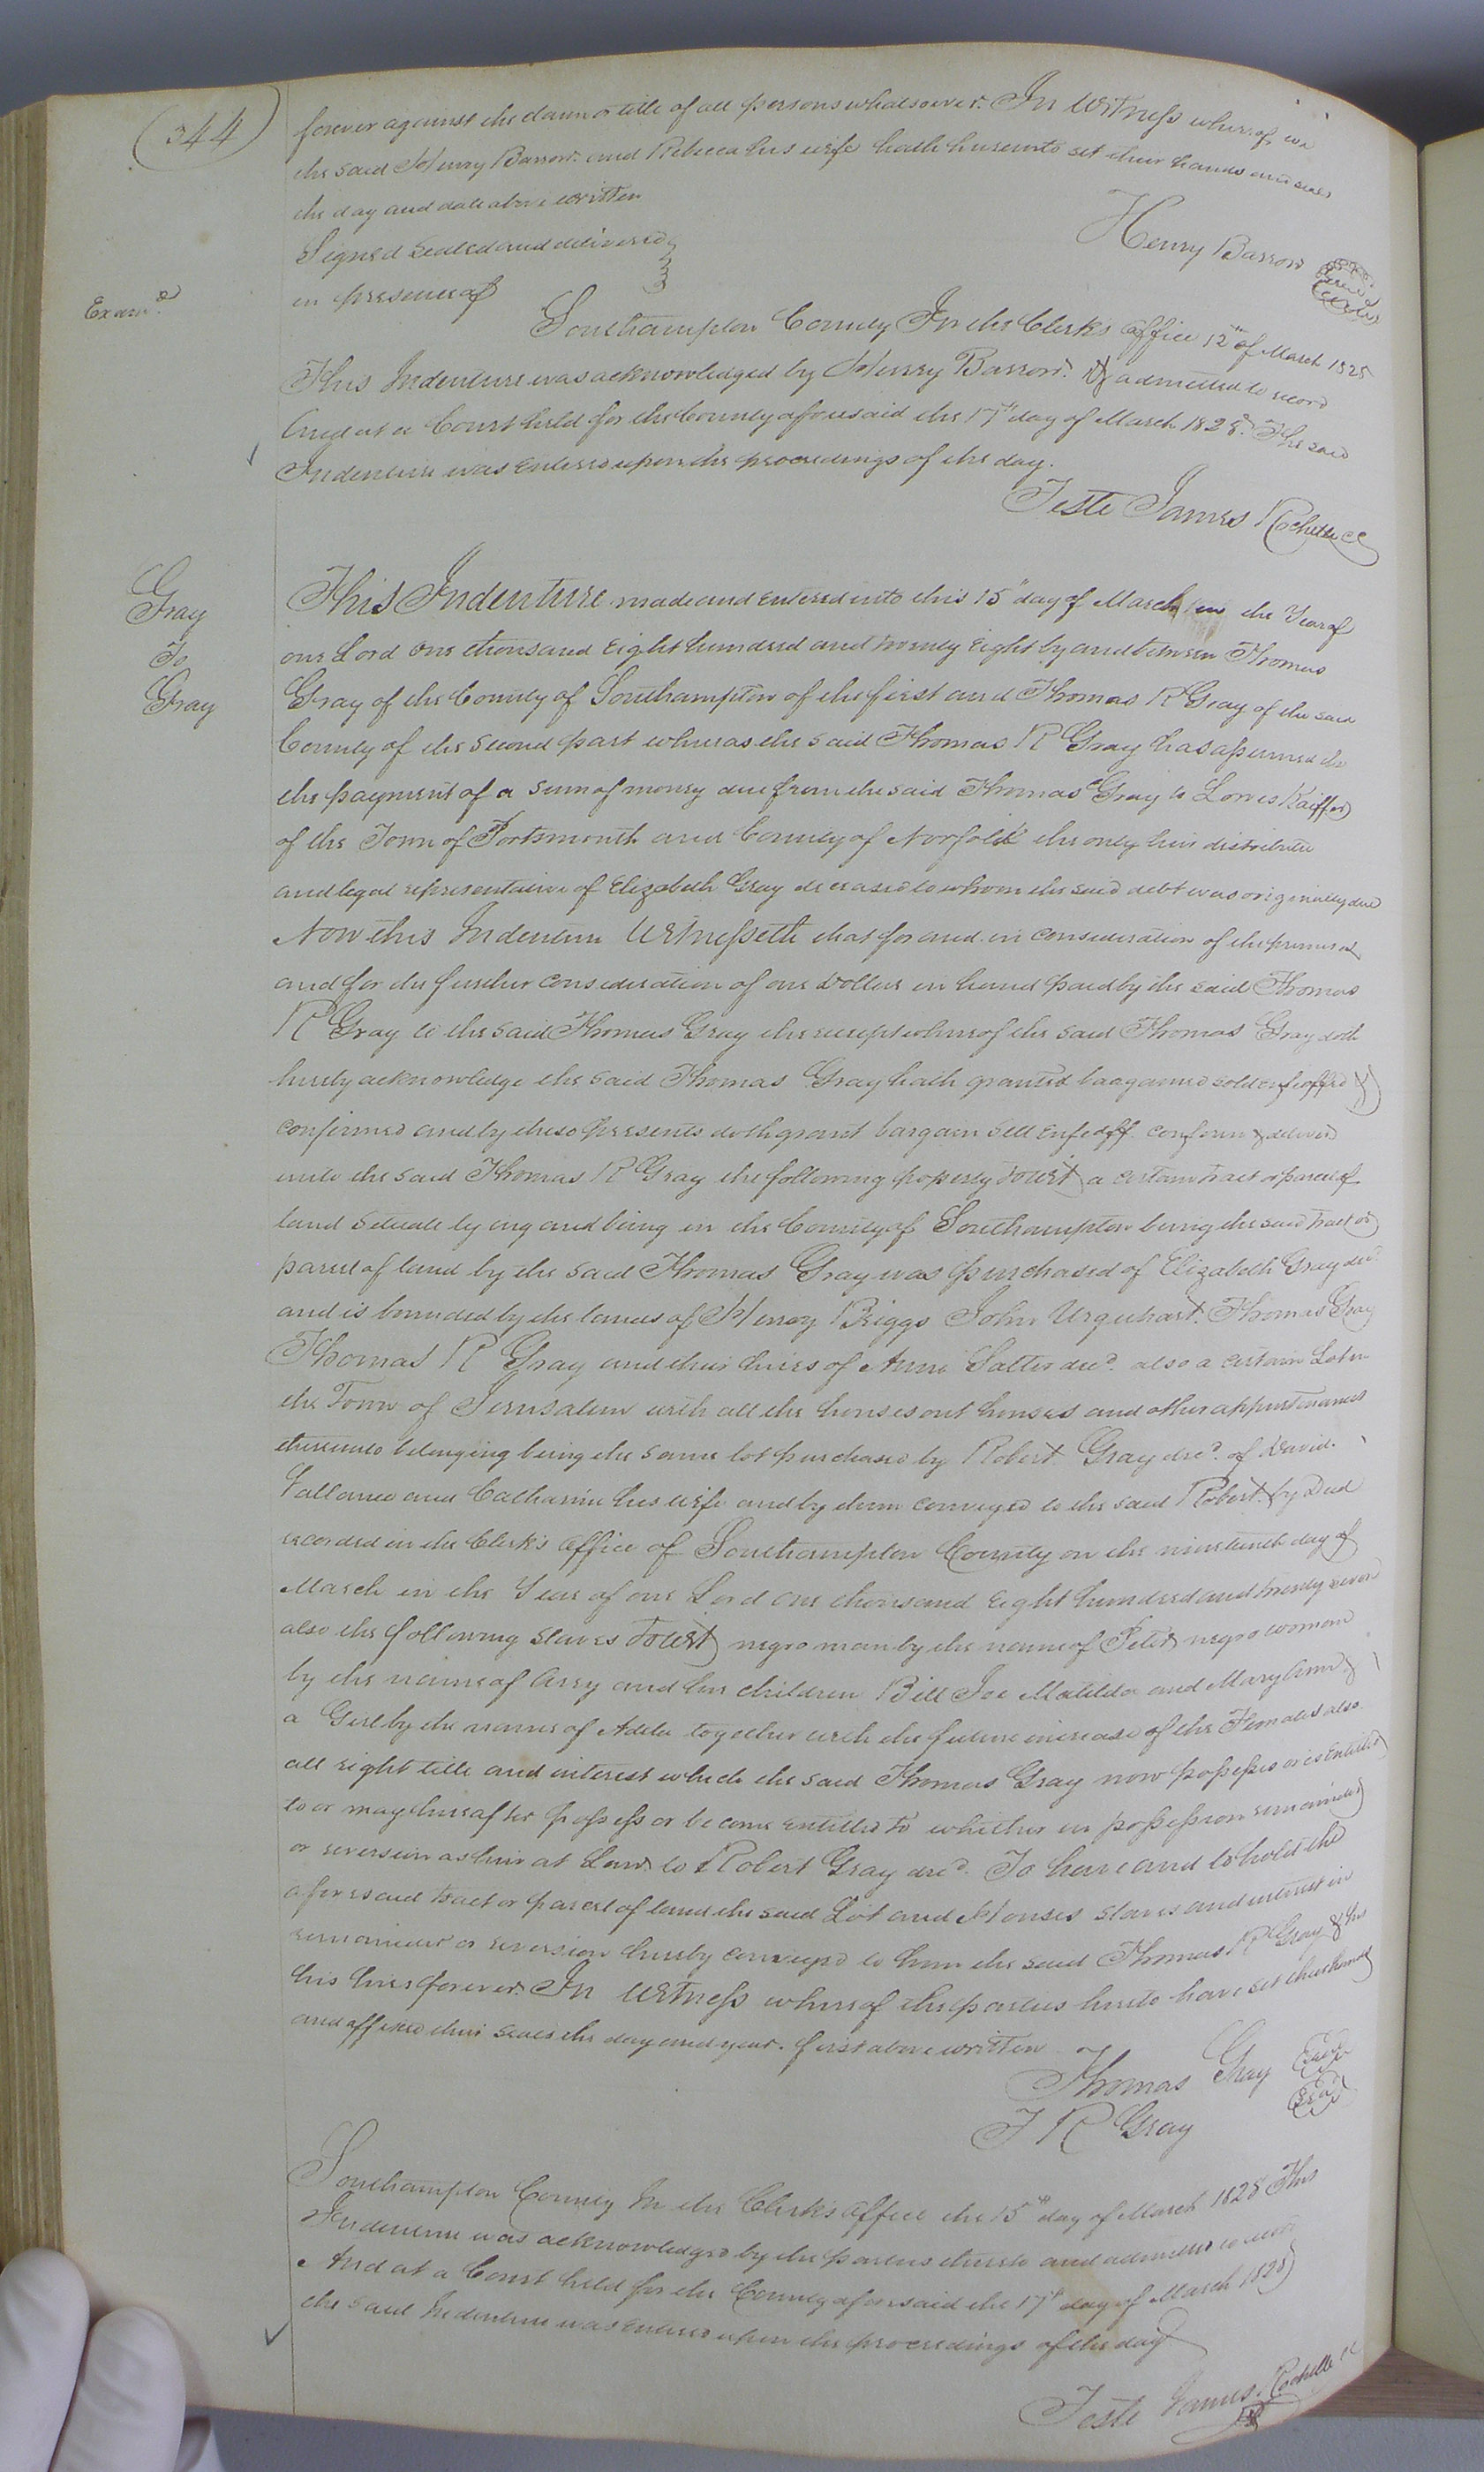 (344)
forever against the claim or title of all persons whatsoever. In Witness whereof we
the said Henry Barrow and Rebecca his wife hath hereunto set their hands and seals
the day and date above written
Signed Sealed and delivered
in presence of
Henry Barrow Seal
Exam.d
Southampton County In the Clerks Office 12th of March 1828
This Indenture was acknowledged by Henry Barrow. & admitted to record
And at a Court held for the County aforesaid the 17th day of March 1828. The said
Indenture was Entered upon the proceedings of the day.
Teste James Rochelle CC
Gray
To
Gray
This Indenture made and entered into this 15th day of March in the Year of
our Lord One thousand Eight hundred and twenty Eight by and between Thomas
Gray of the County of Southampton of the first and Thomas R Gray of the said
County of the Second part whereas the said Thomas R Gray has assumed the
the payment of a sum of money due from the said Thomas Gray to
of the Town of Portsmouth and County of Norfolk the only heir distributee
and legal representative of Elizabeth Gray deceased to whom the said debt was originally due
Now this Indenture Witnesseth that for and in consideration of the premises
and for the further consideration of one Dollar in hand paid by the said Thomas
R Gray to the said Thomas Gray the receipt whereof the said Thomas Gray doth
hereby acknowledge the said Thomas Gray hath granted bargained sold enfeoffed &
confirmed and by these presents doth grant bargain sell Enfeoff confirm & deliver
unto the said Thomas R Gray the following property towit a certain tract or parcel of
land Situate lying and being in the County of Southampton being the said tract or
parcel of land by the said Thomas Gray was purchased of Elizabeth Gray decd
and is bounded by the lands of Henry Briggs John Urquhart. Thomas Gray
Thomas R Gray and their heirs of Anne Salter decd. also a certain Lot in
the Town of Jerusalem with all the houses out houses and other appurtenances
thereunto belonging being the same lot purchased by Robert Gray decd. of David.
Vallance and Catharine his wife and by them conveyed to the said Robert by Deed
recorded in the Clerk's Office of Southampton County on the nineteenth day of
March in the Year of our Lord One thousand Eight hundred and twenty seven
also the following slaves Towit negro man by the name of Peter negro woman
by the name of Arey and her children Bill Joe Matilda and Mary Ann &
a Girl by the name of Adela together with the future increase of the Females also
all right title and interest which the said Thomas Gray now possesses or is Entitled
to or may hereafter possess or become entitled to whether in possession remainder
or reversion as heir at Law to Robert Gray decd. To have and to hold the
aforesaid tract or parcel of land the said Lot and Houses slaves and interest in
remainder or reversion hereby conveyed to him the said Thomas R Gray & his
his heirs forever. In Witness whereof the parties hereto have set their hands
and affixed their seals the day and year. first above written
Thomas Gray Seal
T R Gray Seal
Southampton County In the Clerk's Office the 15th day of March 1828 This
Indenture was acknowledged by the parties thereto and admitted to record
And at a Court held for the County aforesaid the 17th day of March 1828
the said Indenture was Entered upon the proceedings of the day
Teste James Rochelle CC